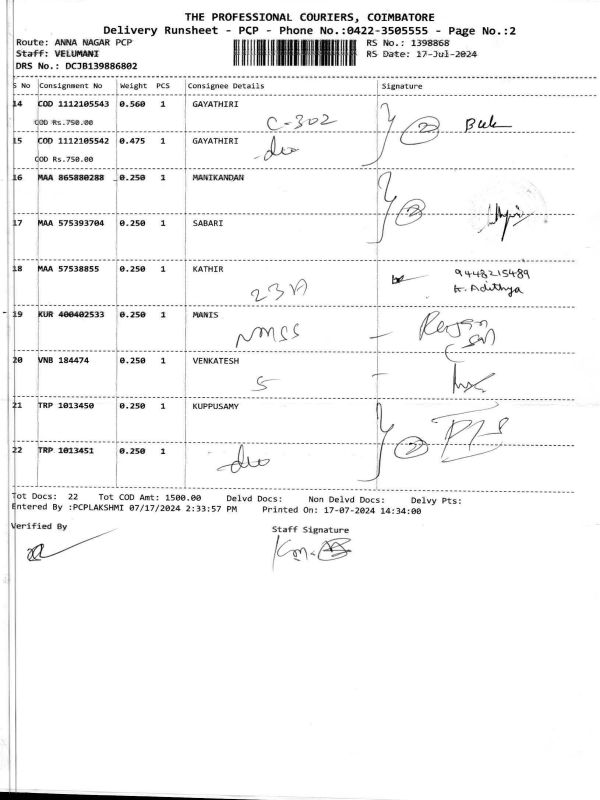 THE PROFESSIONAL COURIERS, COIMBATORE
Delivery Runsheet - PCP - Phone No.:0422-3505555 - Page No.:2
Route: ANNA NAGAR PCP RS No.: 1398868
Staff: VELUMANI RS Date: 17-Jul-2024
DRS No.: DCJB139886802
S No Consignment No Weight PCS Consignee Details Signature
14 COD 1112105543 0.560 1 GAYATHIRI
COD Rs.750.00 C-302 2
15 COD 1112105542 0.475 1 GAYATHIRI
COD Rs.750.00 do
16 MAA 865880288 0.250 1 MANIKANDAN
2
17 MAA 575393704 0.250 1 SABARI
18 MAA 57538855 0.250 1 KATHIR 9448215489
23A K. Adithya
19 KUR 400402533 0.250 1 MANIS
NMSS
20 VNB 184474 0.250 1 VENKATESH
5
21 TRP 1013450 0.250 1 KUPPUSAMY
2
22 TRP 1013451 0.250 1
do
Tot Docs: 22 Tot COD Amt: 1500.00 Delvd Docs: Non Delvd Docs: Delvy Pts:
Entered By :PCPLAKSHMI 07/17/2024 2:33:57 PM Printed On: 17-07-2024 14:34:00
Verified By Staff Signature